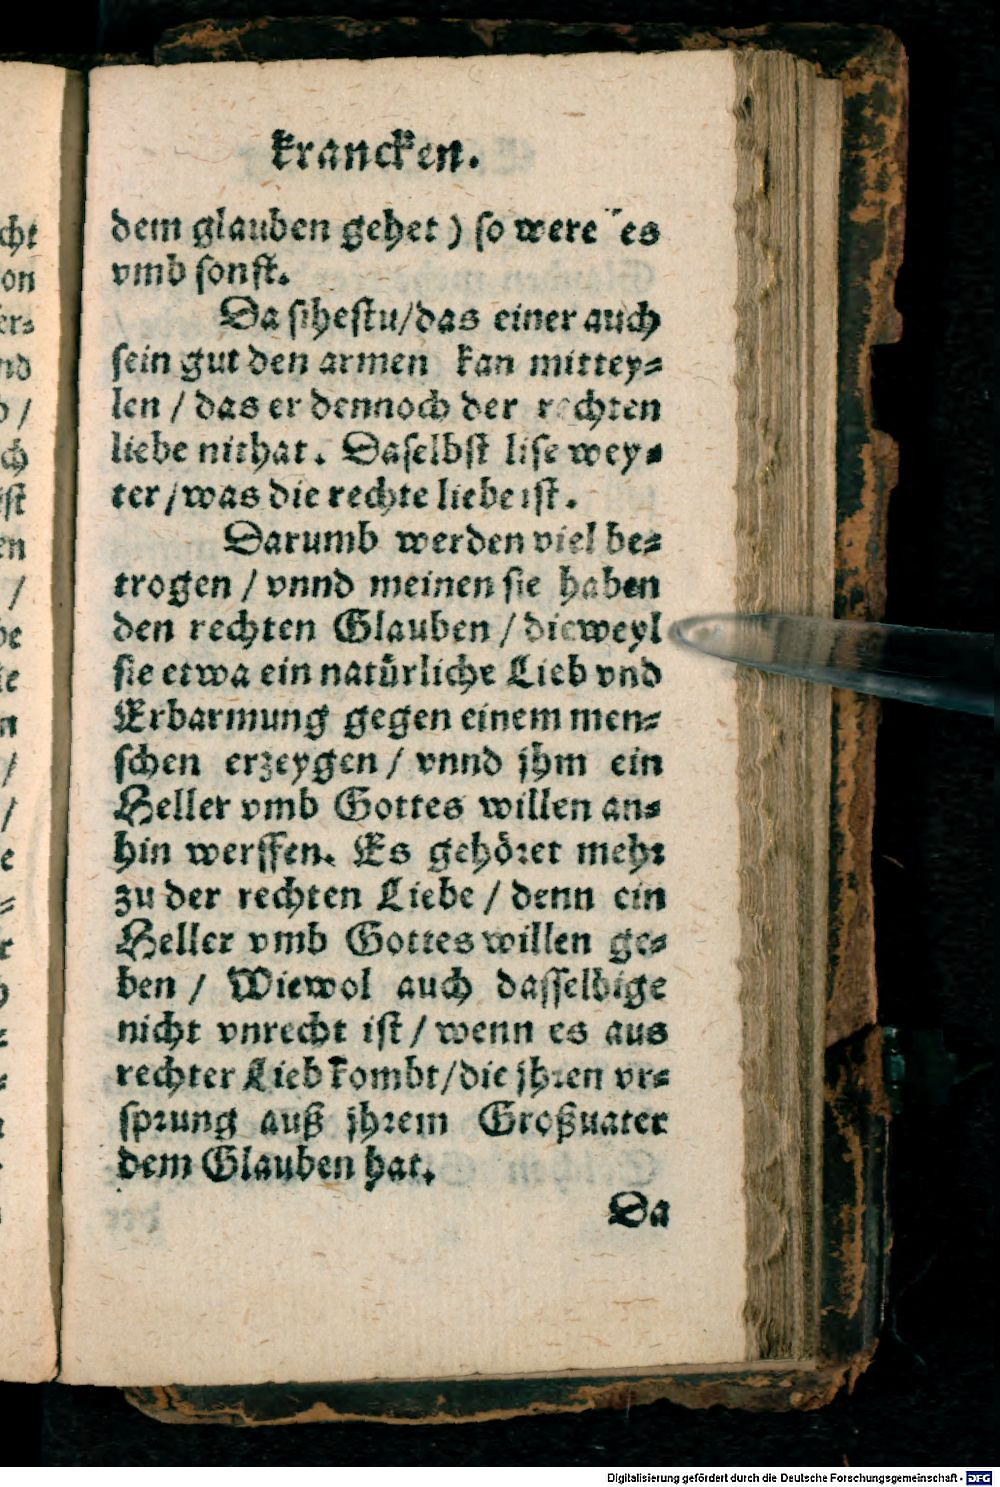 krancken.
dem glauben gehet) so were es
vmb sonst.
Da sihestu/das einer auch
sein gut den armen kan mittey⸗
len / das er dennoch der rechten
liebe nit hat. Daselbst lise wey⸗
ter/was die rechte liebe ist.
Darumb werden viel be⸗
trogen / vnnd meinen sie haben
den rechten Glauben / dieweyl
sie etwa ein natürliche Lieb vnd
Erbarmung gegen einem men⸗
schen erzeygen / vnnd jhm ein
Heller vmb Gottes willen an⸗
hin werffen. Es gehöret mehr
zu der rechten Liebe / denn ein
Heller vmb Gottes willen ge⸗
ben / Wiewol auch dasselbige
nicht vnrecht ist / wenn es aus
rechter Lieb kombt/die jhren vr⸗
sprung auß jhrem Großuater
dem Glauben hat.
Da
Digitalisierung gefördert durch die Deutsche Forschungsgemeinschaft - DFG